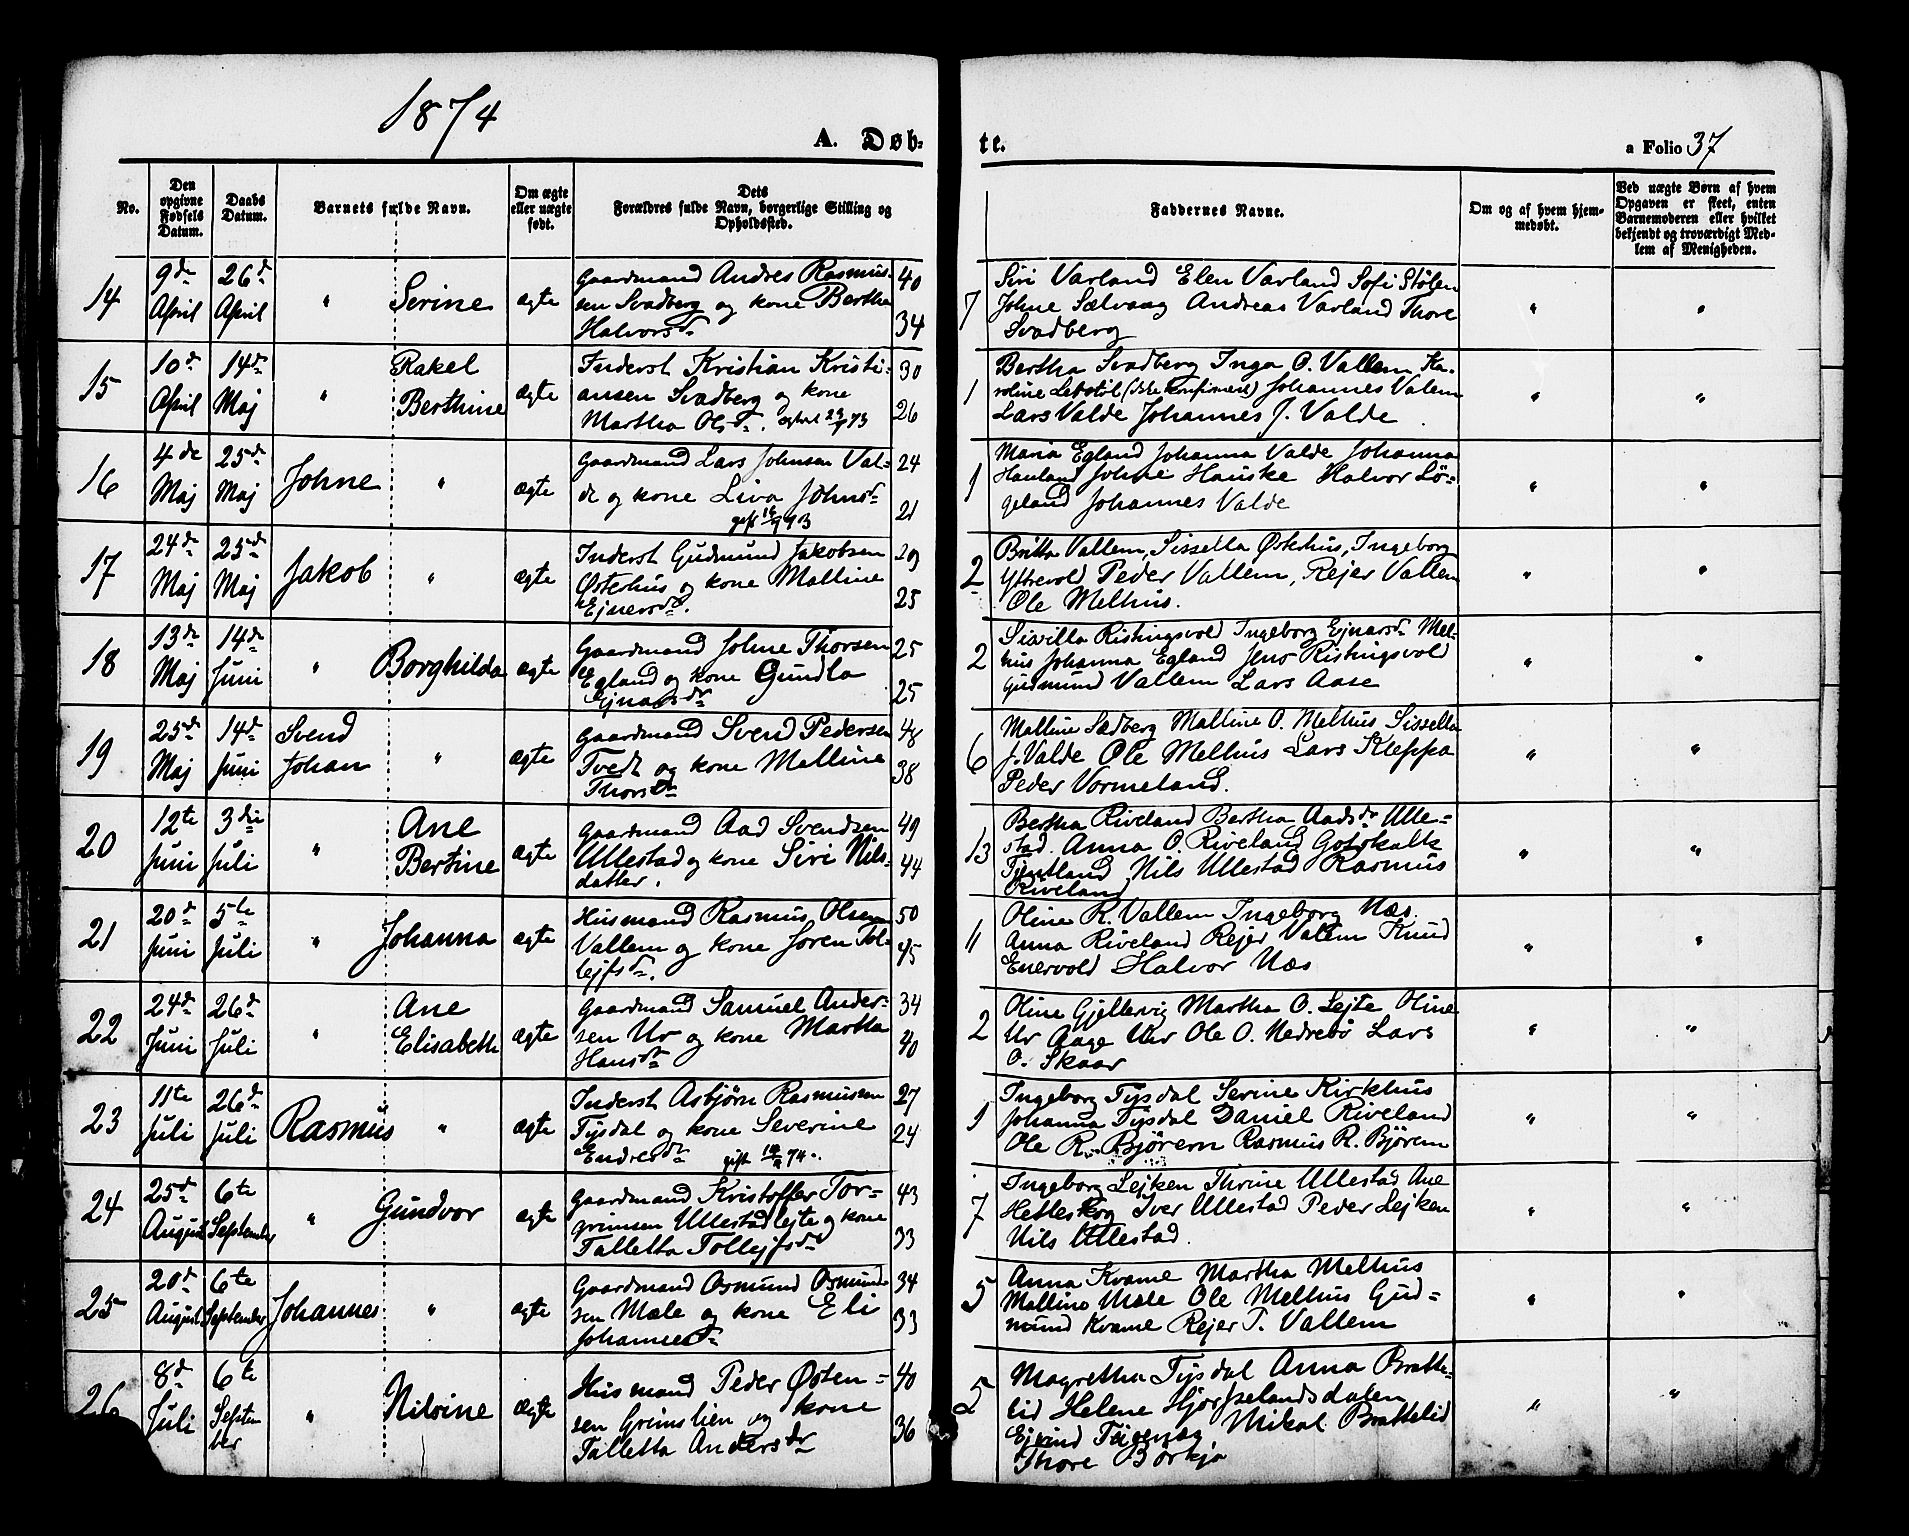 1874
A. Døb-
te.
a Folio 37
No.
Den opgivne Fødsels Datum.
Daabs Datum.
Barnets fulde Navn.
Om ægte eller uægte født.
Dets Forældres fulde Navn, borgerlige Stilling og Opholdssted.
Faddernes Navne.
Om og af hvem hjemmedøbt.
Ved uægte Børn af hvem Opgaven er skeet, enten Barnemoderen eller hvilket bekjendt og troværdigt Medlem af Menigheden.
14 9de April 26de April " Serine ægte
Gaardmand Andres Rasmus- 40
sen Svadberg og kone Bertha
Halvorsdr 34
7 Siri Varland Elen Varland Sofi Stølen
Johne Sælvaag Andreas Varland Thore
Svadberg " "
15 10de April 14de Maj " Rakel Berthine ægte
Inderst Kristian Kristi- 30
ansen Svadberg og kone
Martha Olsdr. 26
1 Bertha Svadberg Inga O. Vallem Ka-
roline Løbstøl (ikke konfirmert) Johannes Valem
Lars Valde Johannes J. Valde " "
16 4de Maj 25de Maj Johne " ægte
Gaardmand Lars Johnsen Val- 24
de og kone Liva Johnsdr
gift 21
1 Maria Egland Johanna Valde Johanna
Hauland Johne Hauske Halvor Lö-
geland Johannes Valde " "
17 24de Maj 25de Maj Jakob " ægte
Inderst Gudmund Jakobsen 29
Østerhus og kone Malline
Ejnersdr. 25
2 Britta Vallem, Sissella Østerhus, Ingeborg
Yttrevold Peder Vallem, Rejer Vallem
Ole Melhus. " "
18 13de Maj 14de Juni " Borghilda ægte
Gaardmand Johne Thorsen 25
Egland og kone Gundla
Ejnarsdr 25
2 Sisilla Ristingsvold Ingeborg Ejnarsdr Mel-
hus Johanna Egland Jens Ristingsvold
Gudmund Vallem Lars Aase " "
19 25de Maj 14de Juni Svend Johan " ægte
Gaardmand Svend Pedersen 48
Tvedt og kone Malline
Thorsdr 38
6 Malline Sadberg Malline O. Melhus Sissella
J. Valde Ole Melhus Lars Kleppa
Peder Vormeland. " "
20 12te Juni 3die Juli " Ane Bertine ægte
Gaardmand Aad Svendsen 49
Ullestad og kone Siri Nils-
datter. 44
13 Bertha Riveland Bertha Aadsdr Ulle-
stad. Anna O. Riveland Gotskalk
Tjentland Nils Ullestad Rasmus
Riveland " "
21 20de Juni 5te Juli " Johanna ægte
Husmand Rasmus Olsen 50
Vallem og kone Soren Tol-
lejfsdr. 45
11 Oline R. Vallem Ingeborg Næs.
Anna Riveland Rejer Vallem Knud
Enervold Halvor Næs " "
22 24de Juni 26de Juli " Ane Elisabeth ægte
Gaardmand Samuel Ander- 34
sen Ur og kone Martha
Hansdr 40
2 Oline Gjellervig Martha O. Lejte Oline
Ur Aage Uhr Ole O. Nedrebö Lars
O. Skaar " "
23 11te Juli 26de Juli Rasmus " ægte
Inderst Asbjörn Rasmussen 27
Tysdal og kone Severine
Endresdr gift 24
1 Ingeborg Tysdal Serine Kirkhus
Johanna Tysdal Daniel Riveland
Ole R. Björem Rasmus R. Björem " "
24 25de August 6te September " Gundvor ægte
Gaardmand Kristoffer Tor- 43
rimsen Ullestadlejte og kone
Talletta Tollejfsdr 33
7 Ingeborg Lejken Thrine Ullestad Ane
Helleskog Iver Ullestad Peder Lejken
Nils Ullestad. " "
25 20de August 6te September Johannes " ægte
Gaardmand Osmund Osmund- 34
sen Mæle og kone Eli
Johannesdr 33
5 Anna Kvame Martha Melhus
Malline Mæle Ole Melhus Gud-
mund Kvame Rejer T. Vallem " "
26 8de Juli 6te September " Nilsine ægte
Husmand Peder Østen- 40
sen Grimslien og kone
Talletta Andersdr 36
5 Magretha Tysdal Anna Bratte-
lid Helene
Ejvind Mikal Brattelid
Thore Börkja " "